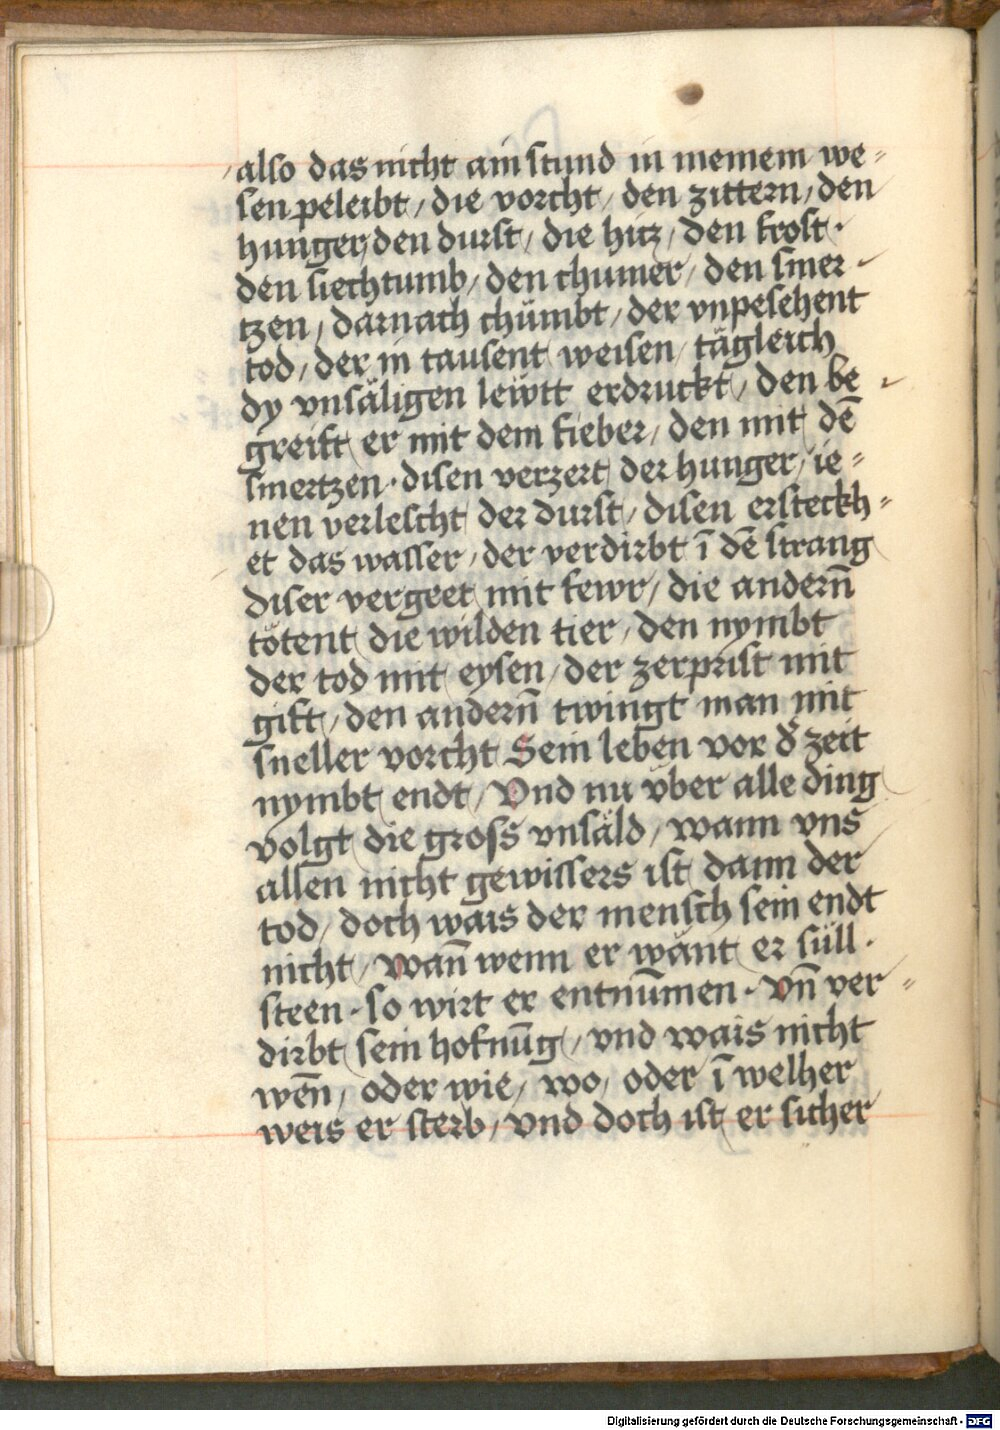 also das nicht ain stund in meinem we⸗
sen peleibt / die vorcht / den zittern / den
hunger / den durst / die hitz / den frost ·
den siechtumb / den chumer / den smer⸗
tzen / darnach chümbt / der vnpesehent
tod / der in tausent weisen / tägleich
dy vnsäligen leẅtt erdruckt / den be⸗
greift er mit dem fieber / den mit dē
smertzen · disen verzert der hunger / ie⸗
nen verlescht der durst / disen ersteckh⸗
et das wasser / der verdirbt ī dē strang
diser vergeet mit fewr / die andern̄
tötent die wilden tier / den nymbt
der tod mit eysen / der zerprist mit
gift / den andern̄ twingt man mit
sneller vorcht Sein leben vor d̕ zeit
nymbt endt / Vnd nu vber alle ding
volgt die gross vnsäld / wann vns
allen nicht gewissers ist dann der
tod / doch wais der mensch sein endt
nicht / Wan̄ wenn er wänt er süll ·
steen · so wirt er entnūmen · Vn̄ ver⸗
dirbt sein hofnūg / vnd wais nicht
wēn / oder wie / wo / oder ī welher
weis er sterb / vnd doch ist er sicher
Digitalisierung gefördert durch die Deutsche Forschungsgemeinschaft - DFG